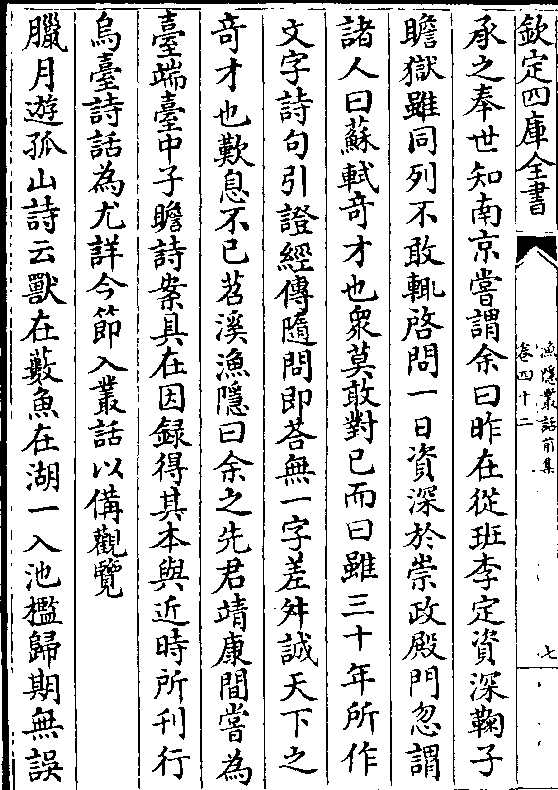 欽定四庫全書
漁隱叢話前集
卷四十二
七
承之奉世知南京嘗謂余曰昨在從班李定資深鞠子
瞻獄雖同列不敢輒啓問一日資深於崇政殿門忽謂
諸人曰蘇軾竒才也衆莫敢對已而曰雖三十年所作
文字詩句引證經傳隨問即荅無一字差舛誠天下之
竒才也歎息不已苕溪漁隱曰余之先君靖康間嘗為
臺端臺中子瞻詩案具在因録得其本與近時所刊行
烏臺詩話為尤詳今節入叢話以備觀覽
臘月遊孤山詩云獸在藪魚在湖一入池檻歸期無誤